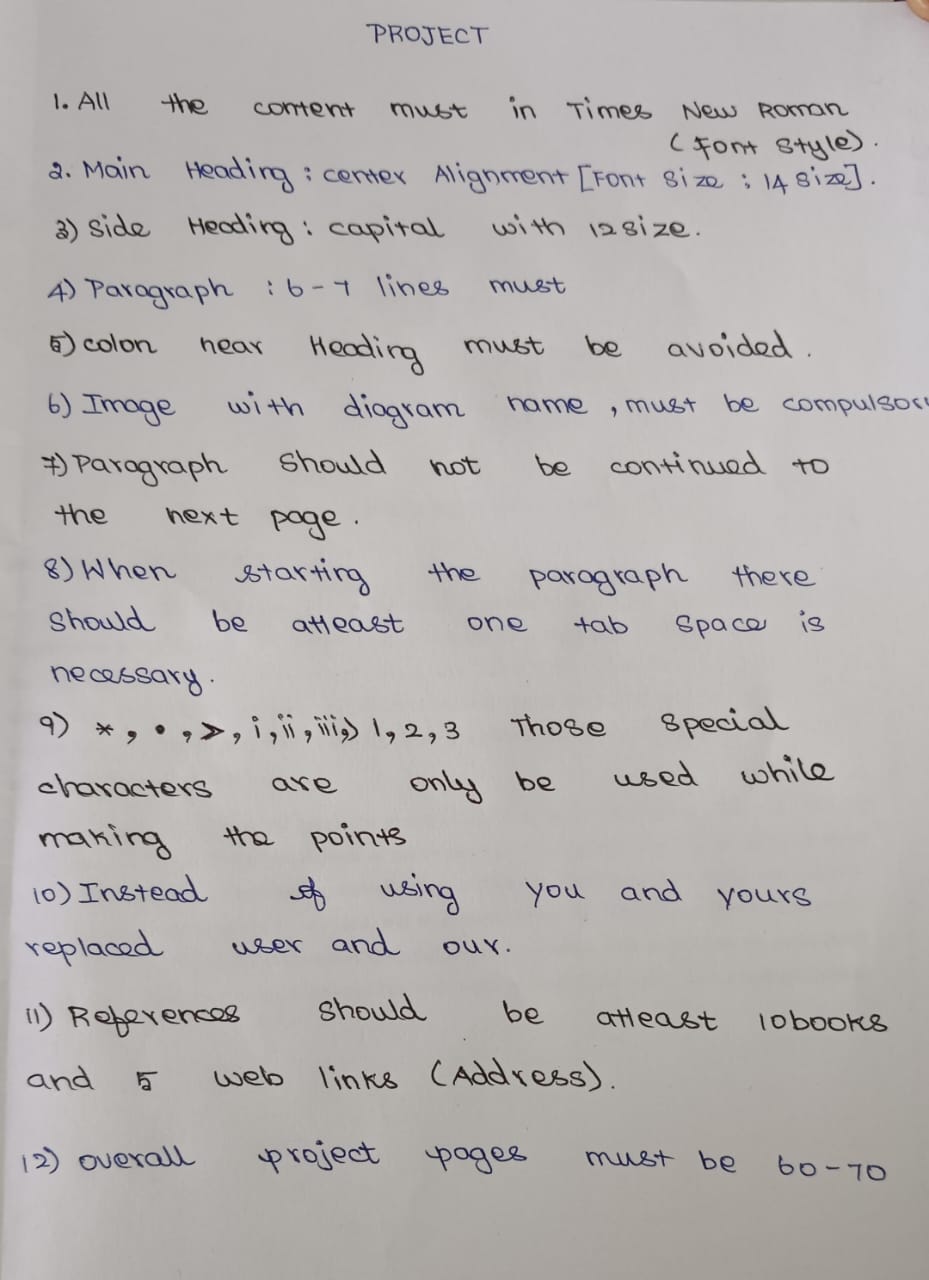 PROJECT
1. All the content must in Times New Roman
(Font Style).
2. Main Heading : center Alignment [Font Size : 14 size].
3) Side Heading : capital with 12 size.
4) Paragraph : 6-7 lines must
5) colon near Heading must be avoided.
6) Image with diagram name, must be compulsor
7) Paragraph should not be continued to
the next page.
8) When starting the paragraph there
should be atleast one tab space is
necessary.
9) *, •, >, i, ii, iii, 1, 2, 3 Those special
characters are only be used while
making the points
10) Instead of using you and yours
replaced user and our.
11) References should be atleast 10books
and 5 web links (Address).
12) overall project pages must be 60-70